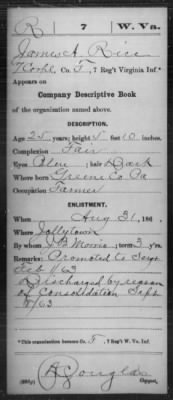 R 7 W. Va.
James A. Rice
Co. F, 7 Reg't Virginia Inf*
Appears on
Company Descriptive Book
of the organization named above.
DESCRIPTION.
Age 25 years; height 5 feet 10 inches.
Complexion Fair
Eyes Blue; hair Dark
Where born Greene Co Pa
Occupation Farmer
ENLISTMENT.
When Aug 31, 186
Where Jollytown
By whom Morris; term 3 y'rs.
Remarks: Promoted to Sergt
Feb 1/63
Discharged by reason
of Consolidation Sept
/63
*This organization became Co. F, 7 Reg't W. Va. Inf.
Douglas
Copyist.